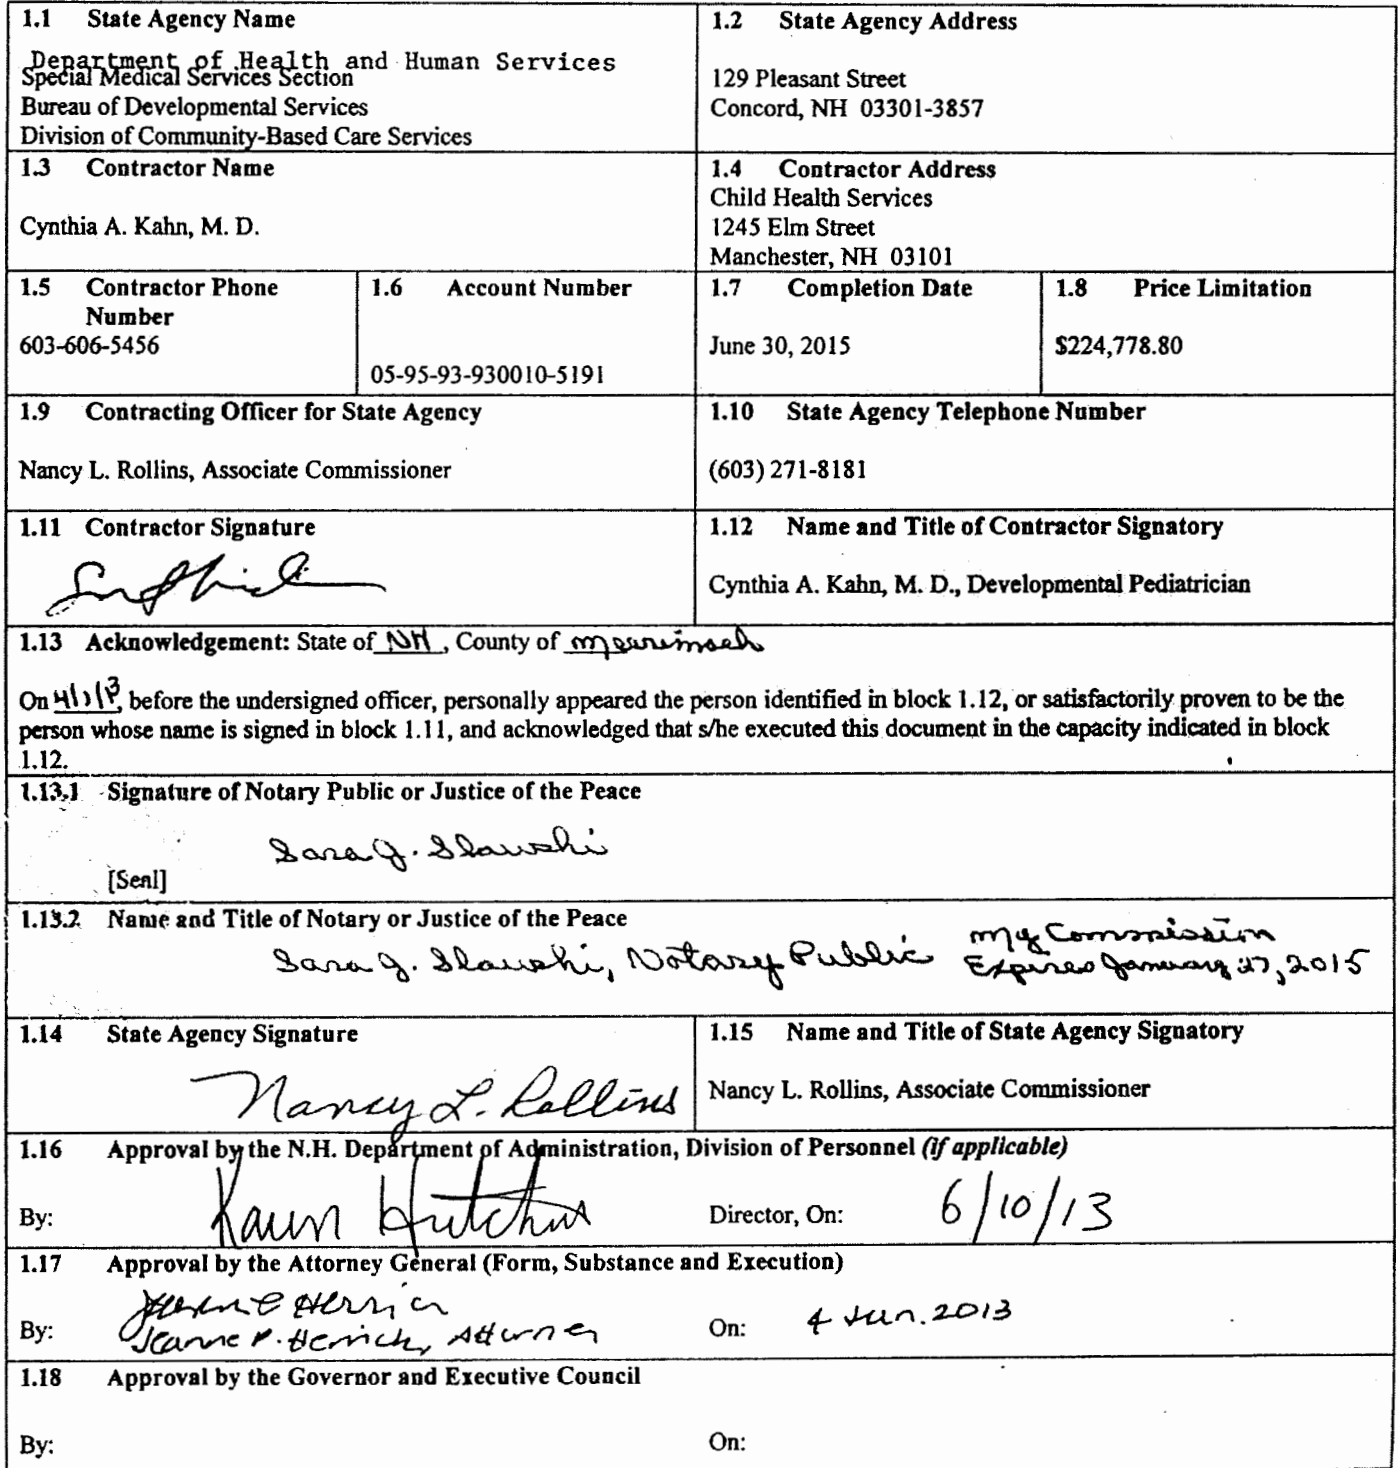 1.1 State Agency Name
Department of Health and Human Services
Special Medical Services Section
Bureau of Developmental Services
Division of Community-Based Care Services
1.2 State Agency Address
129 Pleasant Street
Concord, NH 03301-3857
1.3 Contractor Name
Cynthia A. Kahn, M. D.
1.4 Contractor Address
Child Health Services
1245 Elm Street
Manchester, NH 03101
1.5 Contractor Phone
Number
603-606-5456
1.6 Account Number
05-95-93-930010-5191
1.7 Completion Date
June 30, 2015
1.8 Price Limitation
$224,778.80
1.9 Contracting Officer for State Agency
Nancy L. Rollins, Associate Commissioner
1.10 State Agency Telephone Number
(603) 271-8181
1.11 Contractor Signature
1.12 Name and Title of Contractor Signatory
Cynthia A. Kahn, M. D., Developmental Pediatrician
1.13 Acknowledgement: State of NH, County of Merrimack
On 4/1/13, before the undersigned officer, personally appeared the person identified in block 1.12, or satisfactorily proven to be the
person whose name is signed in block 1.11, and acknowledged that s/he executed this document in the capacity indicated in block
1.12.
1.13.1 Signature of Notary Public or Justice of the Peace
Sara J. Slawski
[Seal]
1.13.2 Name and Title of Notary or Justice of the Peace
Sara J. Slawski, Notary Public
My Commission
Expires January 27, 2015
1.14 State Agency Signature
Nancy L. Rollins
1.15 Name and Title of State Agency Signatory
Nancy L. Rollins, Associate Commissioner
1.16 Approval by the N.H. Department of Administration, Division of Personnel (if applicable)
By: Karen Hutchins Director, On: 6/10/13
1.17 Approval by the Attorney General (Form, Substance and Execution)
Jeanne P. Herrick
By: Jeanne P. Herrick, Attorney On: 4 Jun. 2013
1.18 Approval by the Governor and Executive Council
By: On: